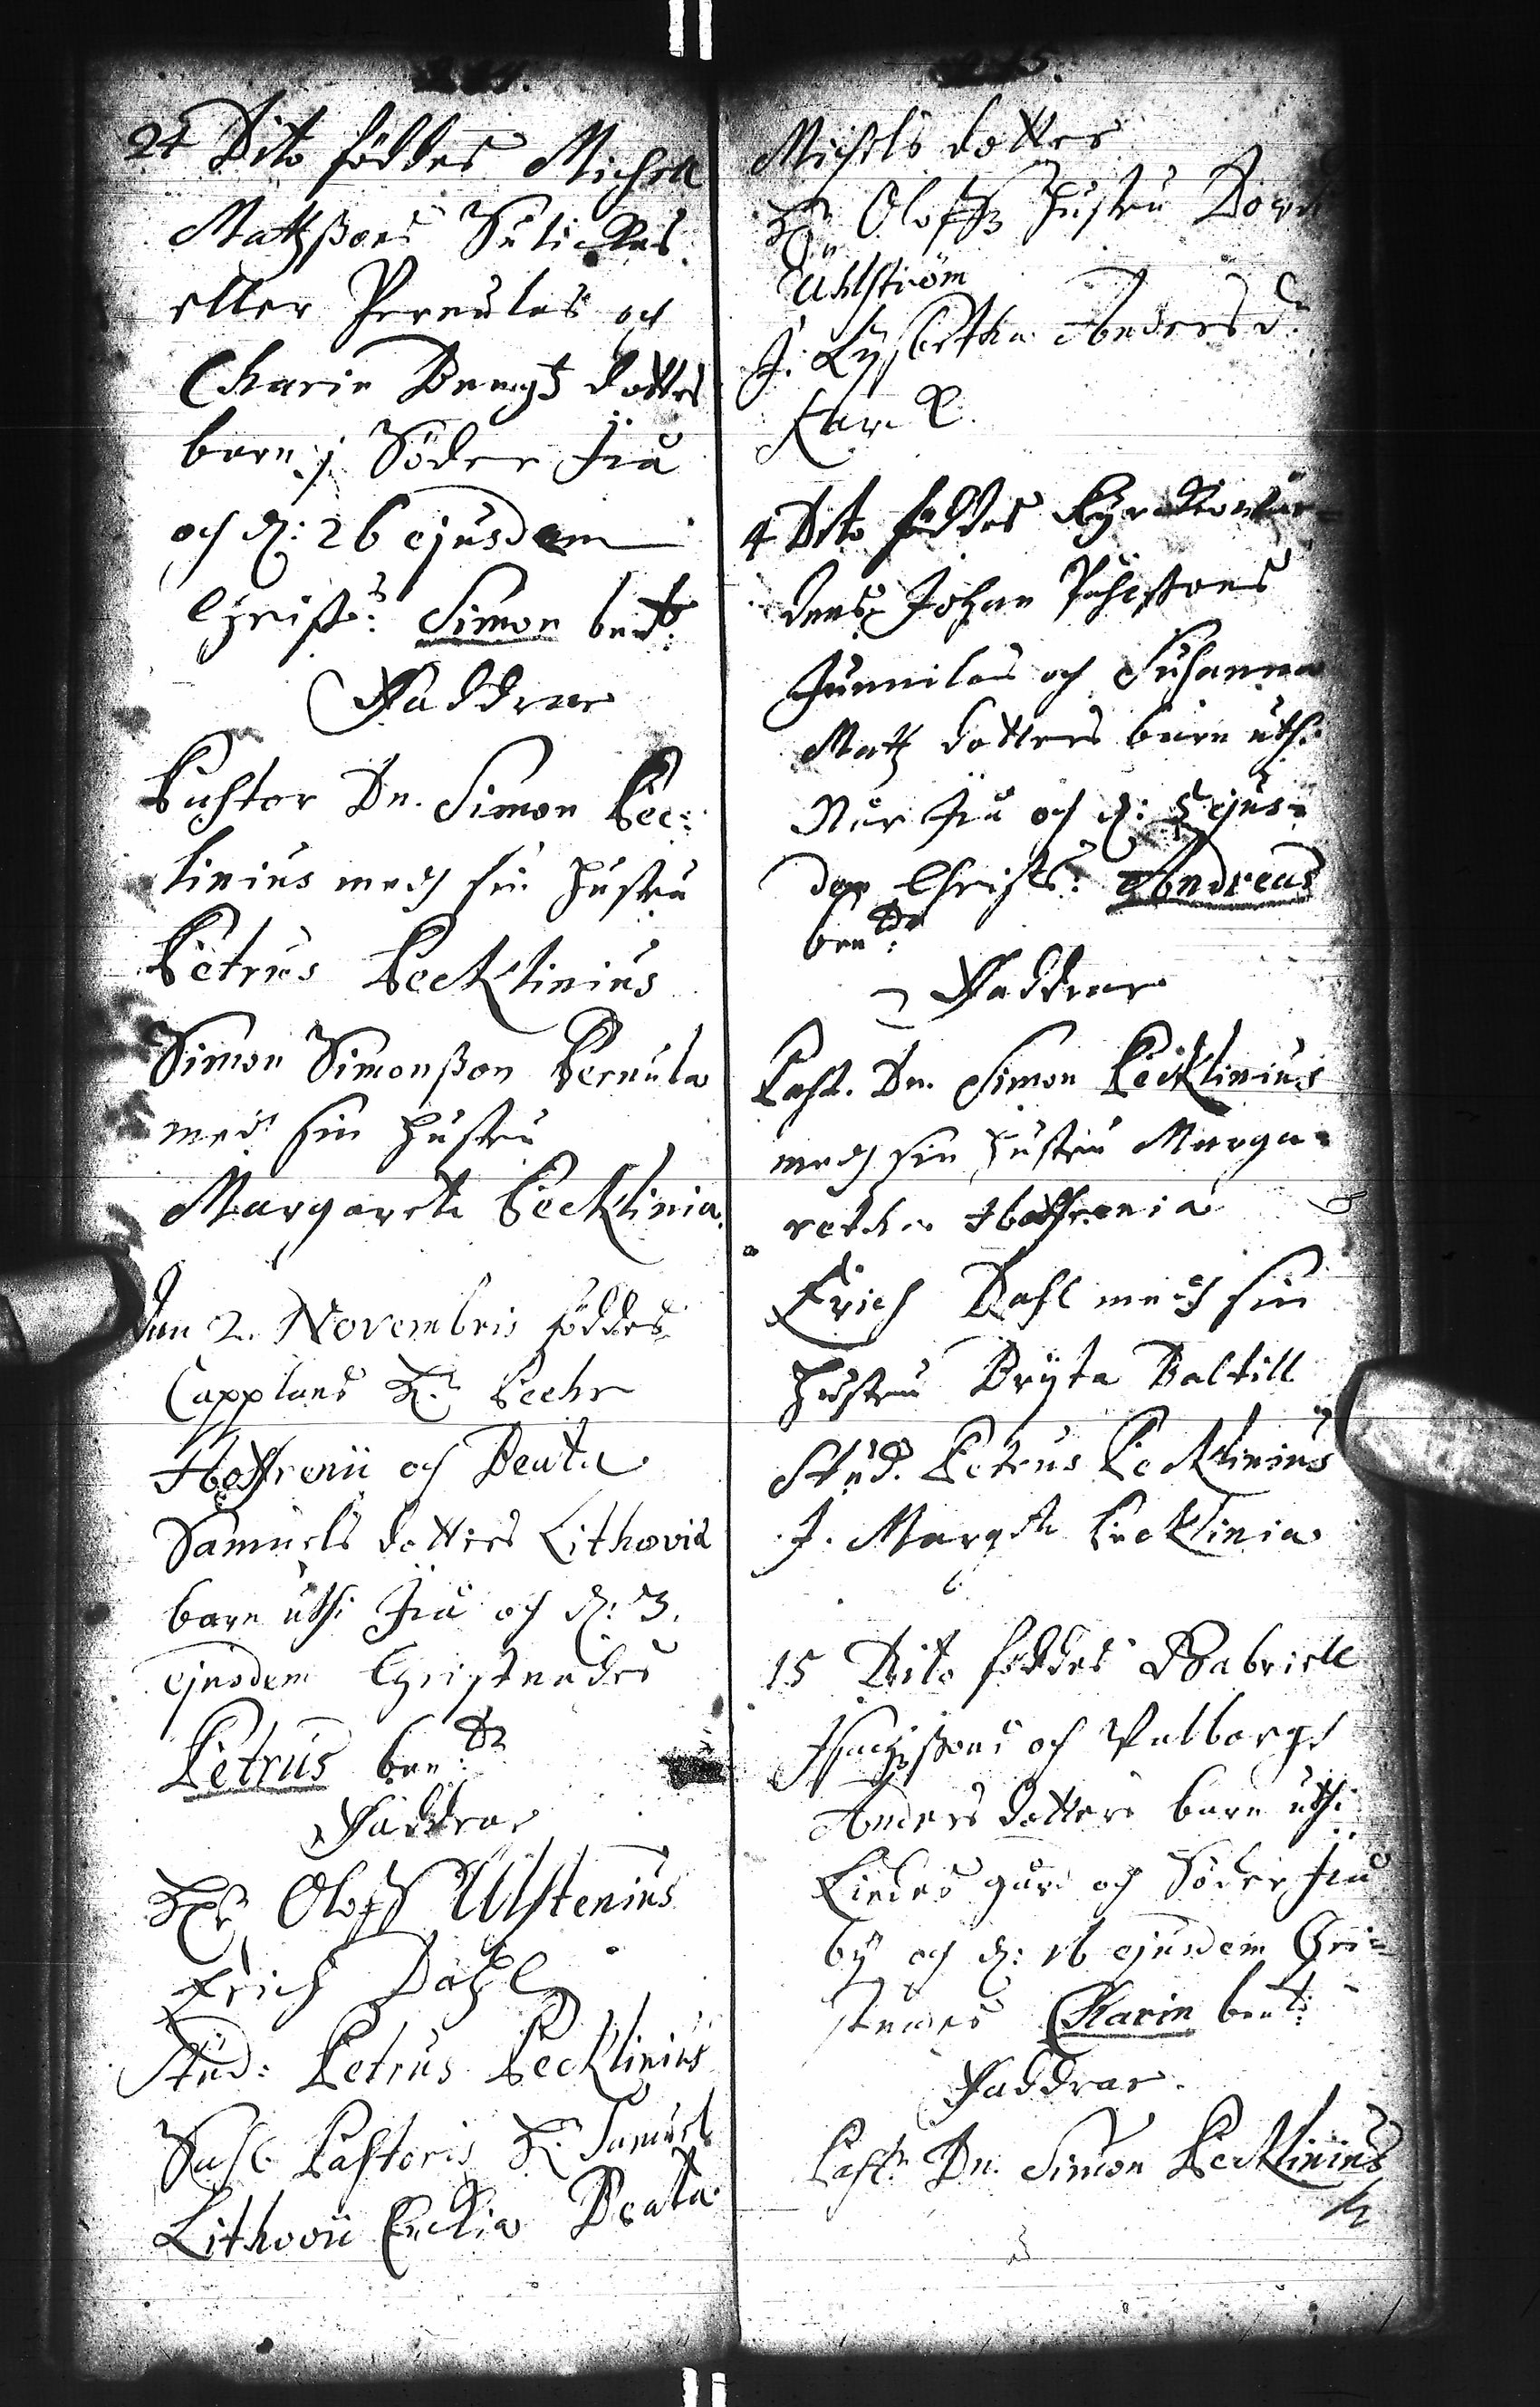 24 Dito föddes Michel
Matzßons Sutickas
eller Pernulas och
Charin Bengtz dotters
barn i Söder Iiå
och d: 26 ejusdem
Christ: Simon bend:
Faddrar
Pastor Dn. Simon Pec:
linius medh sin hustru
Petrus Pecklinius
Simon Simonßon Pernula
med sin hustru
Margareta Pecklinia.
Den 2. Novembris föddes
Capplans Hr Pehr
Hoffrenii och Beata
Samuels dotters Lithovia
barn uthi Iiå och d: 3.
ejusdem Christnades
Petrus ben:d
Faddrar
Hr Oloff Ulstenius
Erich Dahl
Stud: Petrus Pecklinius
Sahl. Pastoris Hr Samuel
Lithovii Enckia Beata
Michels dotter
Hr Oloffz hustru
Uhlström
J. Lysbetha Anders d:
4 Dito föddes
Johan Påhlßons
Junnilas och Susanna
Matz dotters barn uthi
Nör Iiå och d: 5 ejus-
dem Christ: Andreas
ben:d
Faddrar
Past. Dn. Simon Pecklinius
medh sin hustru Marga-
retha Hoffrenia
Erich Dahl medh sin
hustru Bryta Baltill
Stud. Petrus Pecklinius
J. Margta Pecklinia
15 Dito föddes Gabriell
och Valborgs
Anders dotters barn uthi
gård och Söder Iiå
by och d: 16 ejusdem Chri-
stnades Charin bent:
Faddrar.
Past. Dn. Simon Pecklinius